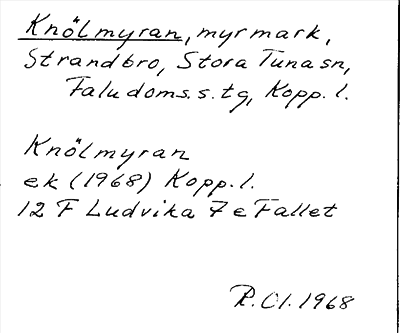 Knölmyran, myrmark,
Strandbro, Stora Tuna sn,
Faludoms. s. tg, Kopp. l.
Knölmyran
ek (1968) Kopp. l.
12 F Ludvika 7 e Fallet
P. Cl. 1968